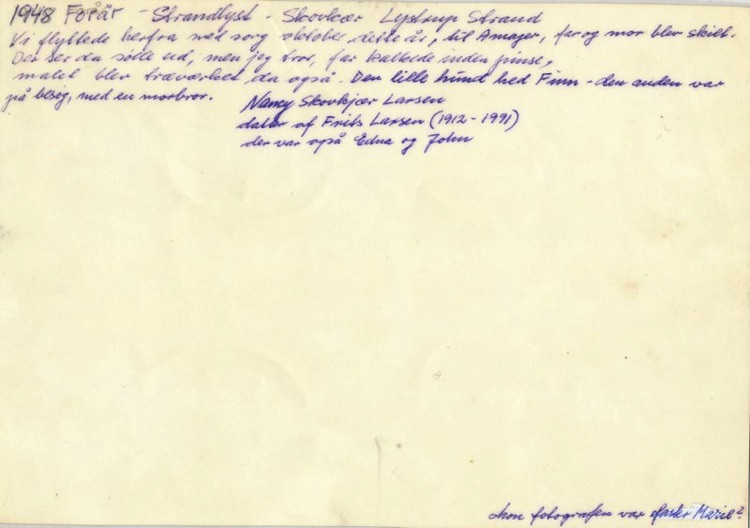 1948 Forår - Strandlyst - Skovkær Lystrup Strand
Vi flyttede herfra med sorg oktober dette år, til Amager, far og mor blev skilt.
Det ser da sølle ud, men jeg tror, far kalkede inden pinse,
malet blev træværket da også. Den lille hund hed Finn - den anden var
på besøg, med en morbror.
Nancy Skovkjær Larsen
datter af Frits Larsen (1912 - 1991)
der var også Edna og John
Mon fotografen var faster Marie?